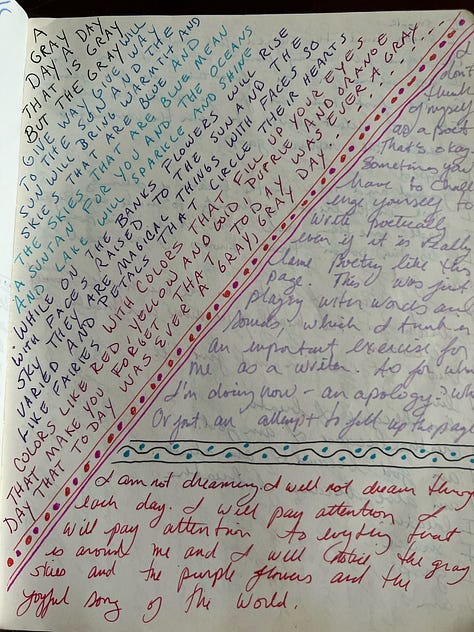 A
GRAY DAY
DAY A DAY
THAT IS GRAY
BUT THE GRAY WILL
GIVE WAY GIVE WAY
TO THE SUN AND THE
SUN WILL BRING WARMTH AND
SKIES THAT ARE BLUE AND
THE SKIES THAT ARE BLUE MEAN
A SUNTAN FOR YOU AND THE OCEANS
AND LAKE WILL SPARKLE AND SHINE
WHILE ON THE BANKS FLOWERS WILL RISE
WITH FACES RAISED TO THE SUN AND THE
SKY THEY ARE MAGICAL THINGS WITH FACES SO
VARIED AND PETALS THAT CIRCLE THEIR HEARTS
LIKE FAIRIES WITH COLORS THAT FILL UP YOUR EYES
COLORS LIKE RED, YELLOW AND GOLD, PURPLE AND ORANGE
THAT MAKE YOU FORGET THAT TODAY WAS EVER A GRAY
DAY THAT TODAY WAS EVER A GRAY, GRAY DAY
I
don't
think
of myself
as a poet
That's okay.
Sometimes you
have to chall-
enge yourself to
write poetically
even if it is really
lame poetry like this
page. This was just
playing with words and
sounds - which I think is
an important exercise for
me as a writer. As for what
I'm doing now - an apology?
Or just an attempt to fill up the page
I am not dreaming. I will not dream
each day. I will pay attention. I
will pay attention to everything that
is around me and I will notice the gray
skies and the purple flowers and the
joyful song of the world.